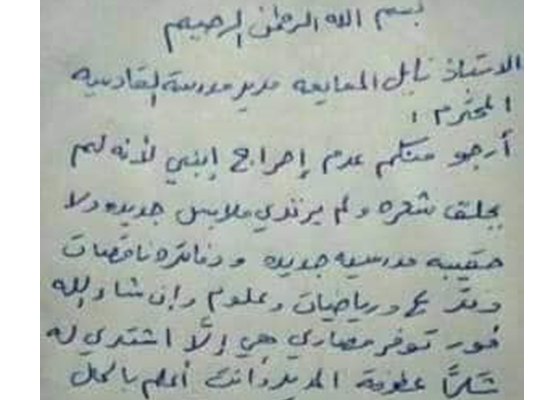 بسم الله الرحمن الرحيم
الاستاذ نايل المعايعه مدير مدرسة القادسيه
المحترم ؛
أرجو منكم عدم إحراج إبني لأنه لم
يحلق شعره ولم يرتدي ملابس جديده ولا
حقيبه مدرسيه جديده ودفاتره ناقصات
دفتر ع ورياضيات وعلوم وإن شاء الله
فور توفر مصاري هي إلّا اشتري له
شكرًا عطوفة المدير وأنت أعلم بالحال